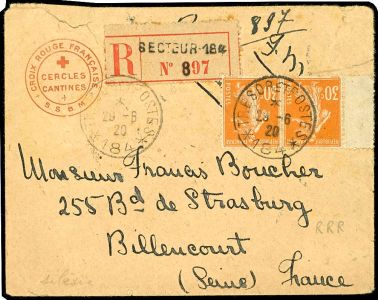 897
CROIX ROUGE FRANÇAISE
CERCLES
CANTINES
S S B M
R
SECTEUR-184
N° 897
TRESOR ET POSTES
28 -6
20
184
30c
Monsieur Francis Boucher
255 Bd de Strasburg
Billencourt
(Seine) France
RRR
silésie